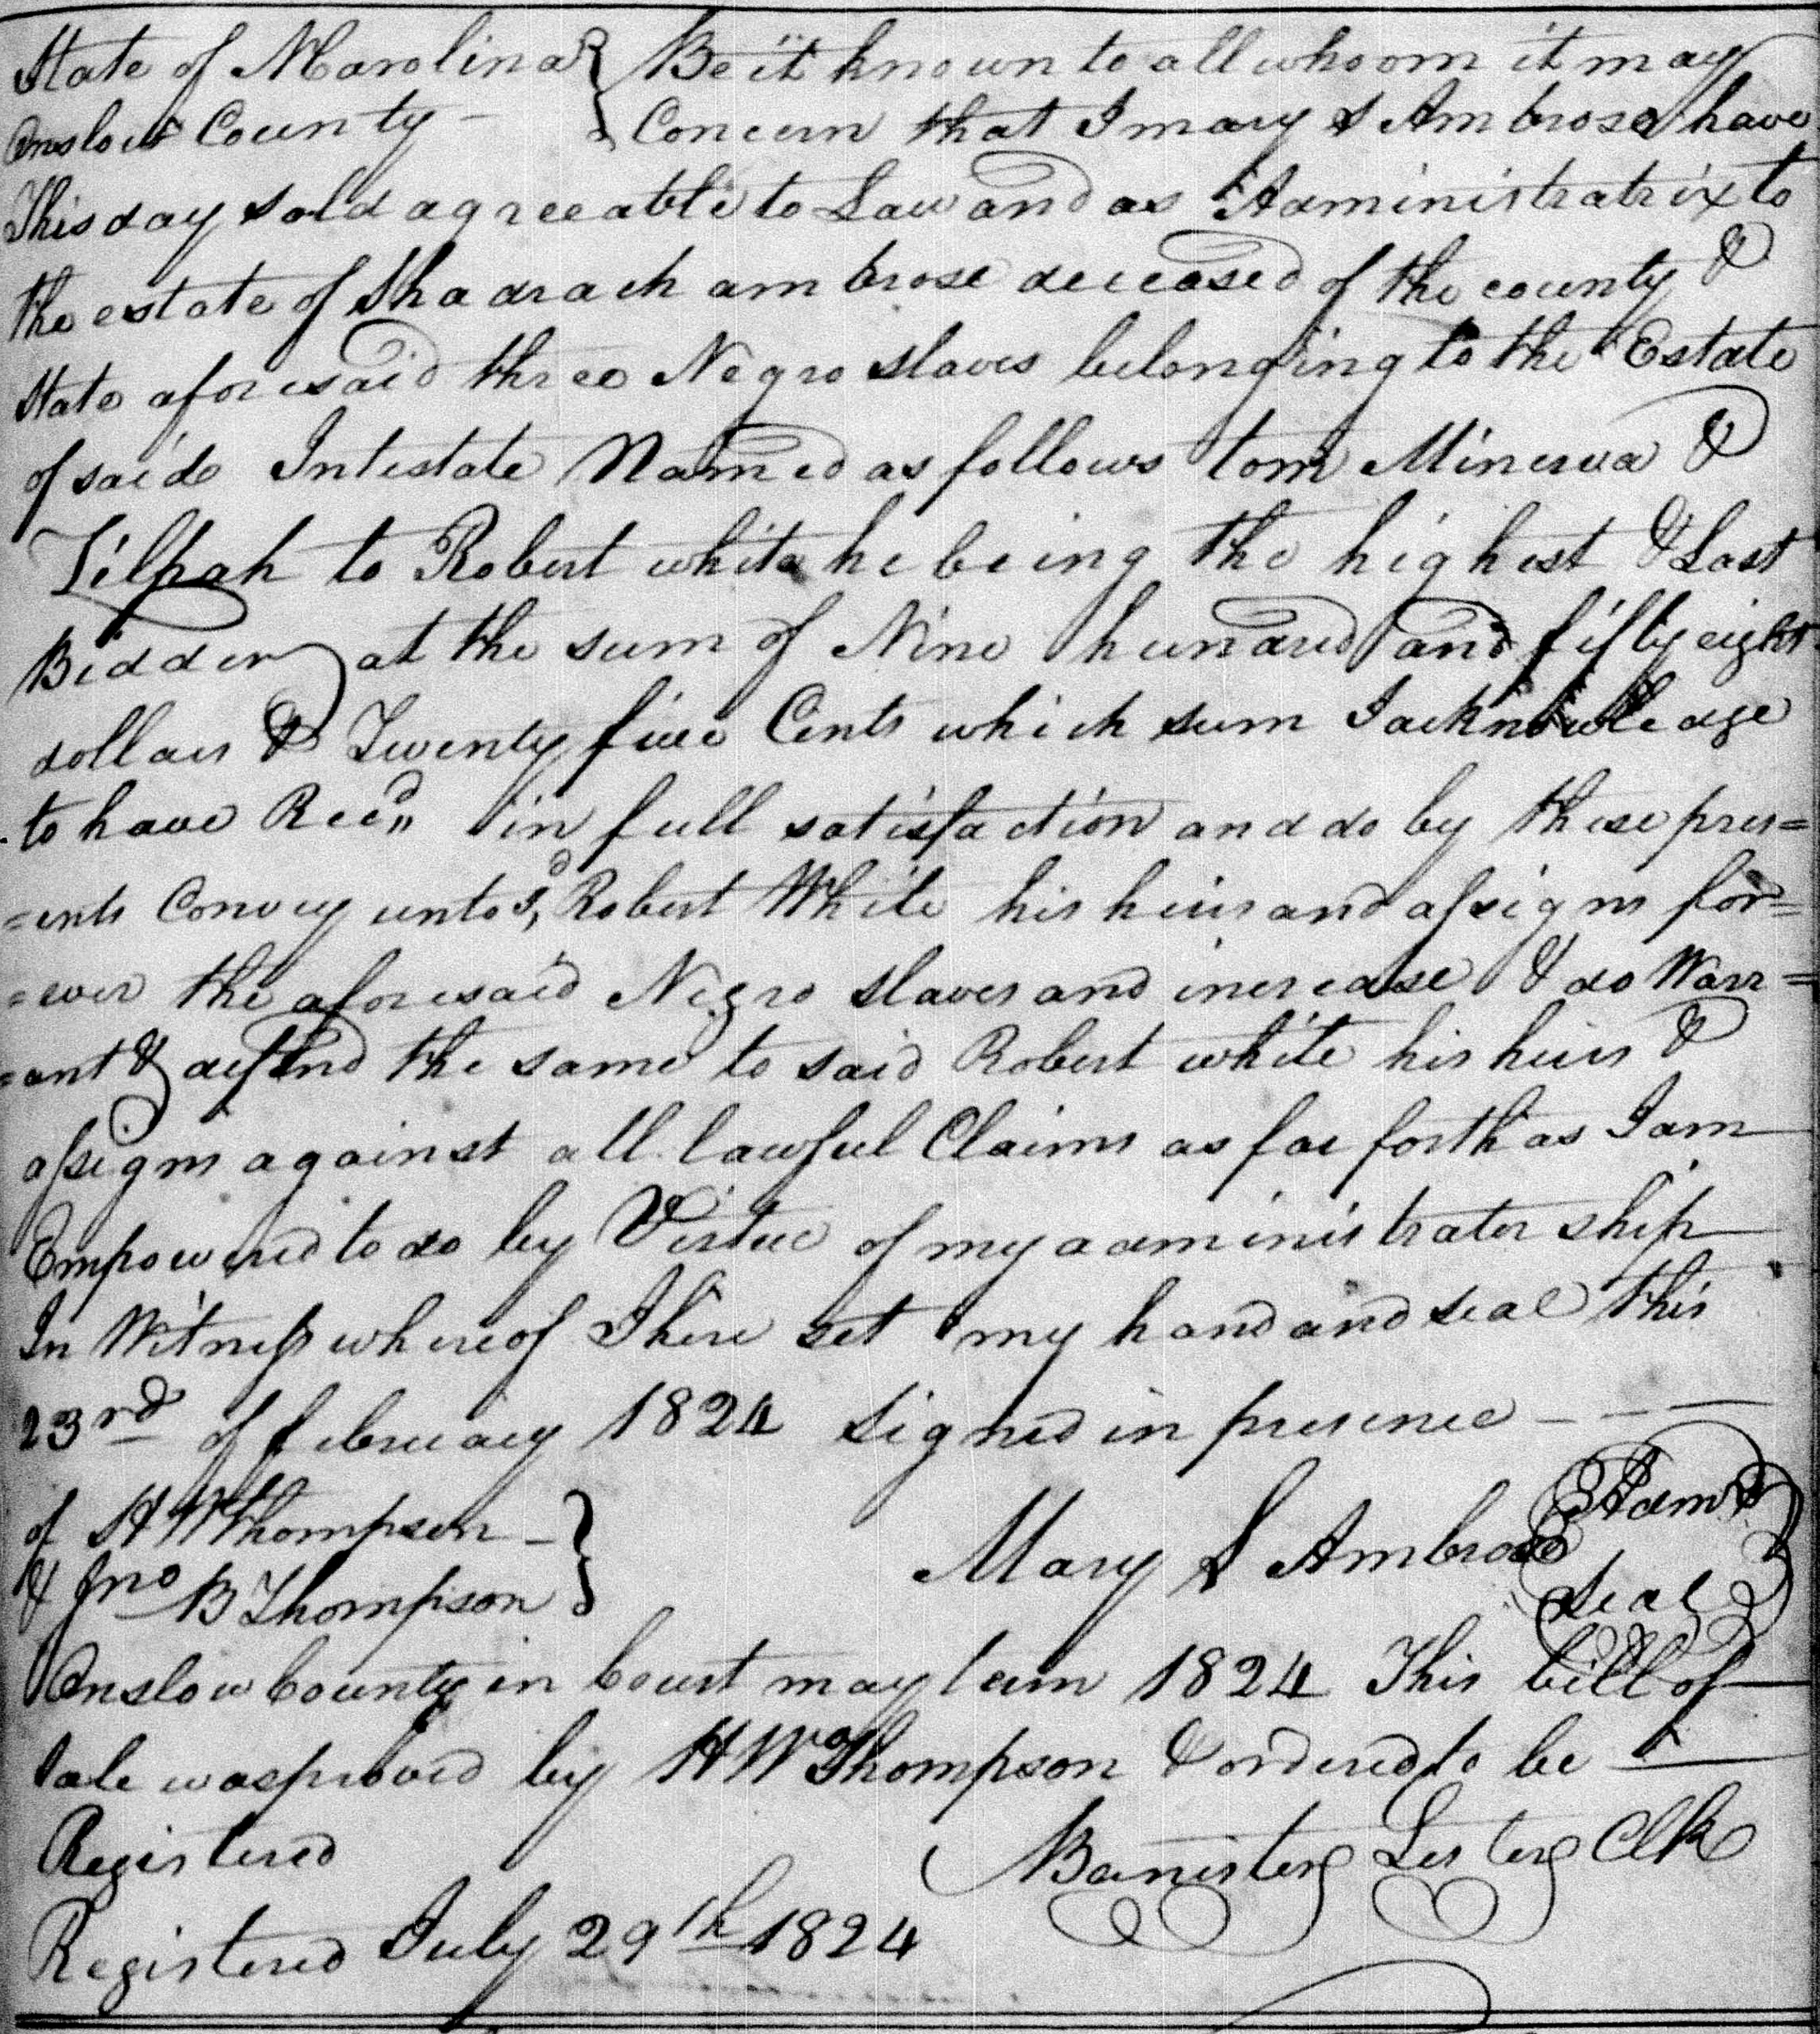 State of N Carolina } Be it known to all whoom it may
Onslow County - } Concern that I mary S Ambrose have
This day sold agreeable to Law and as Administratrix to
the estate of Shadrach ambrose deceased of the county &
State aforesaid three Negro slaves belonging to the Estate
of saide Intestate Named as follows tom Minerva &
Zilpah to Robert white he being the highest & Last
Bidder at the sum of Nine hundred and fifty eight
dollars & Twenty five Cents which sum I acknowledge
to have Recd in full satisfaction and do by these pres=
=ents Convey unto sd Robert White his heirs and assigns for=
=ever the aforesaid Negro slaves and increase & do Warr=
=ant & defend the same to said Robert white his heirs &
assigns against all lawful Claims as far forth as I am
Empowered to do by Virtue of my administrator ship
In Witness whereof I here set my hand and seal this
23rd of february 1824 signed in presence - - -
of H W Thompson - }
& Jno B Thompson } Mary S Ambrose Adm Seal
Onslow County in Court may term 1824 This bill of
sale was proved by H W Thompson & ordered to be
Registered Banister Lester Clk
Registered July 29th 1824